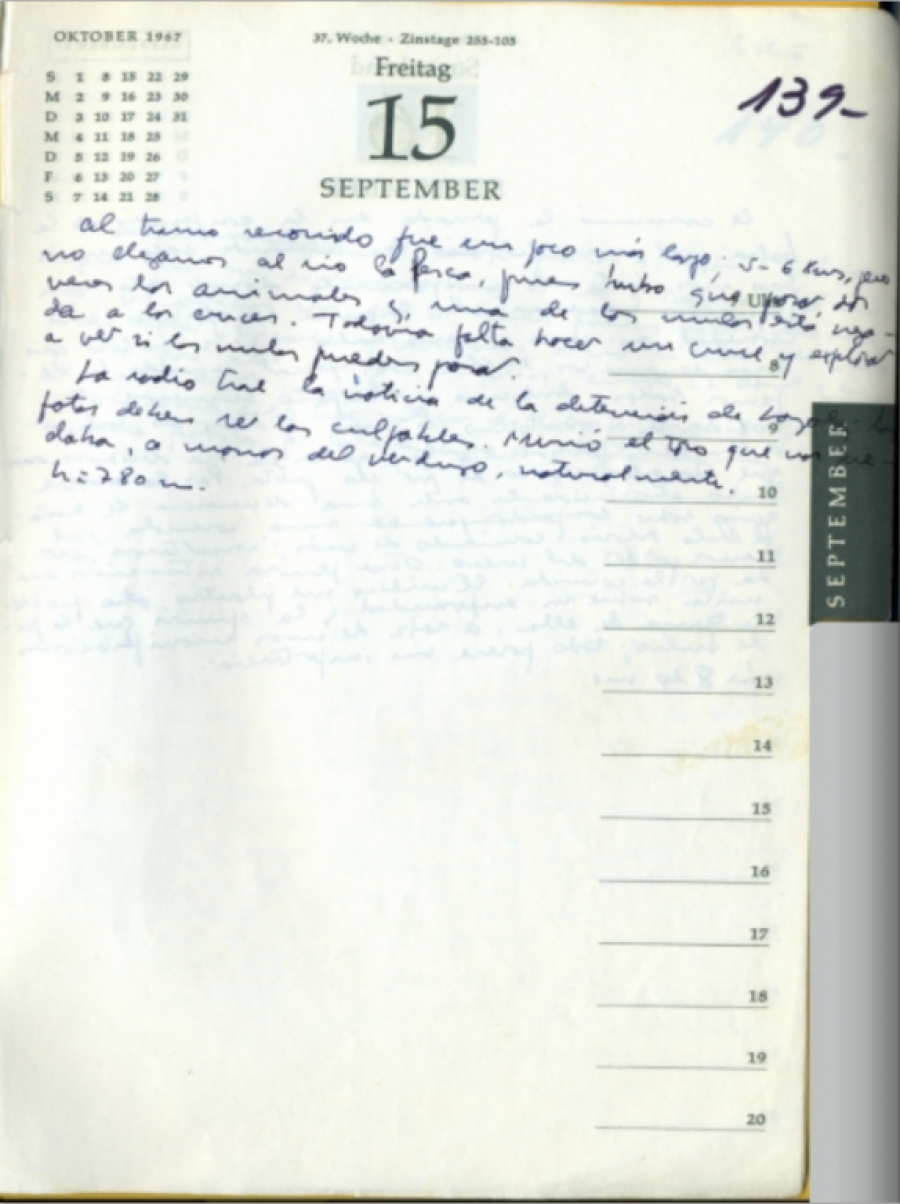 OKTOBER 1967
S 1 8 15 22 29
M 2 9 16 23 30
D 3 10 17 24 31
M 4 11 18 25
D 5 12 19 26
F 6 13 20 27
S 7 14 21 28
37. Woche - Zinstage 255-105
Freitag
15
SEPTEMBER
139-
al tramo recorrido fue un poco más largo; 5-6 Kms, pero
no llegamos al río la Pesca, pues hubo que pasar dos
veces los animales y una de los mulos está nega-
da a los cruces. Todavía falta hacer un cruce y explorar
a ver si los mulos pueden pasar.
La radio trae la noticia de la detención de Loyola. Las
fotos deben ser las culpables. Murió el toro que nos que-
daba, a manos del verdugo, naturalmente.
h = 780 m.
7 U
8
9
10
11
12
13
14
15
16
17
18
19
20
SEPTEMBER